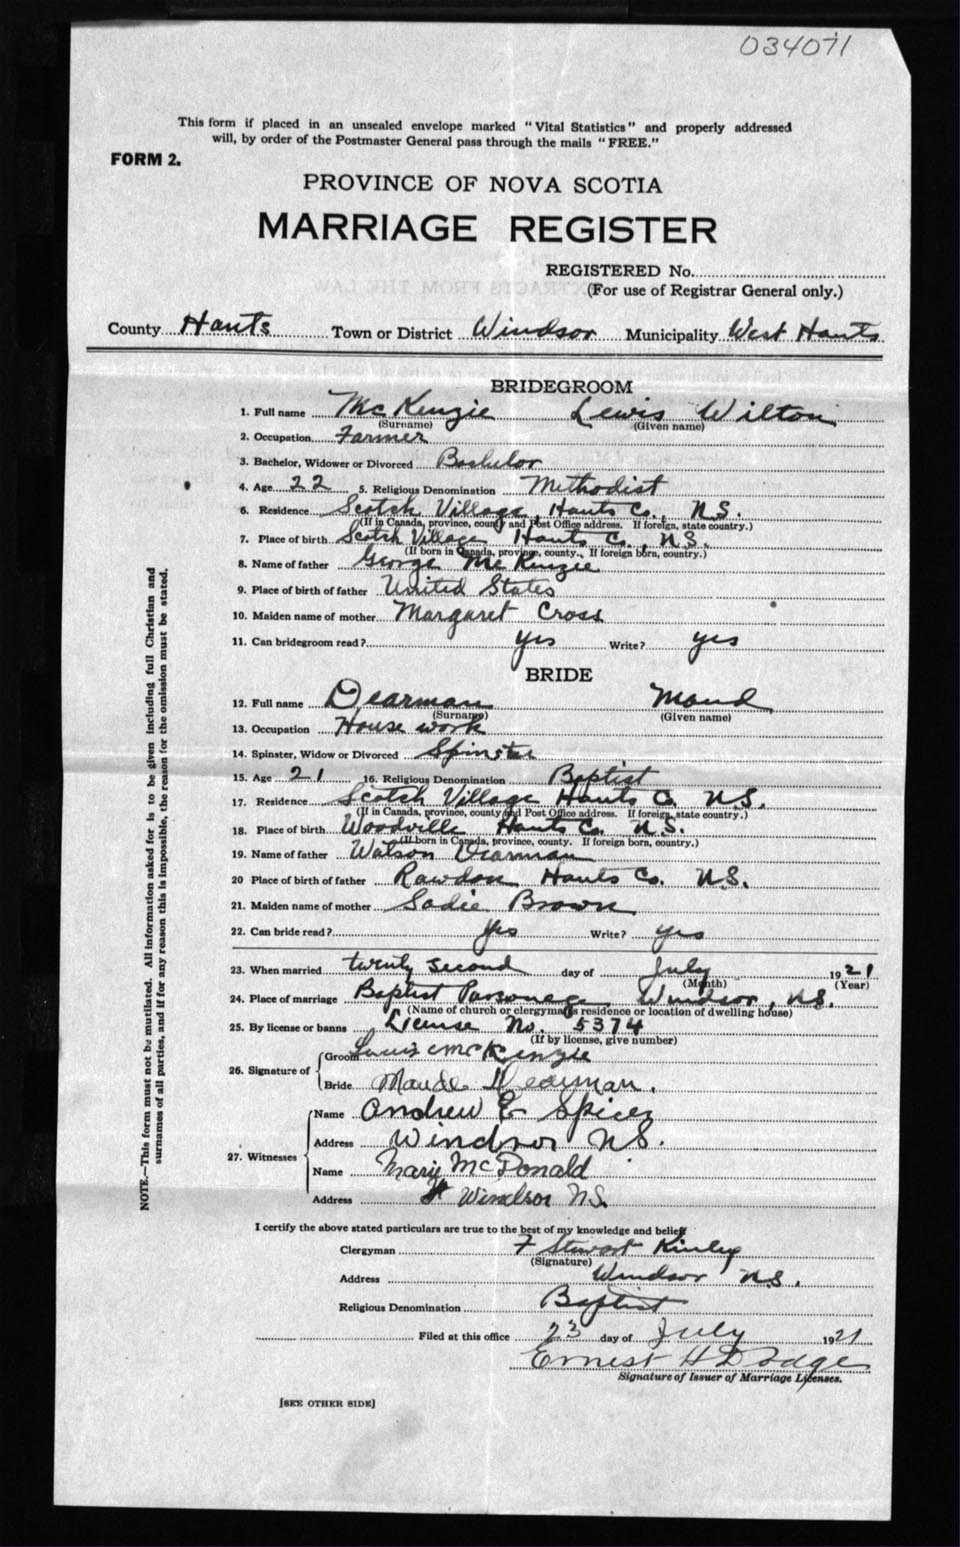 034071
This form if placed in an unsealed envelope marked "Vital Statistics" and properly addressed
will, by order of the Postmaster General pass through the mails "FREE."
FORM 2.
PROVINCE OF NOVA SCOTIA
MARRIAGE REGISTER
REGISTERED No.
(For use of Registrar General only.)
County Hants Town or District Windsor Municipality West Hants
BRIDEGROOM
1. Full name McKenzie Lewis Wilton
(Surname) (Given name)
2. Occupation Farmer
3. Bachelor, Widower or Divorced Bachelor
4. Age 22 5. Religious Denomination Methodist
6. Residence Scotch Village, Hants Co., N.S.
(If in Canada, province, county and Post Office address. If foreign, state country.)
7. Place of birth Scotch Village Hants Co., N.S.
(If born in Canada, province, county. If foreign born, country.)
8. Name of father George McKenzie
9. Place of birth of father United States
10. Maiden name of mother Margaret Cross
11. Can bridegroom read? yes Write? yes
BRIDE
12. Full name Dearman Maud
(Surname) (Given name)
13. Occupation House work
14. Spinster, Widow or Divorced Spinster
15. Age 21 16. Religious Denomination Baptist
17. Residence Scotch Village Hants Co N.S.
(If in Canada, province, county and Post Office address. If foreign, state country.)
18. Place of birth Woodville Hants Co. N.S.
(If born in Canada, province, county. If foreign born, country.)
19. Name of father Watson Dearman
20 Place of birth of father Rawdon Hants Co. N.S.
21. Maiden name of mother Sadie Brown
22. Can bride read? yes Write? yes
23. When married twenty second day of July 1921
(Month) (Year)
24. Place of marriage Baptist Parsonage Windsor, N.S.
(Name of church or clergymans residence or location of dwelling house)
25. By license or banns License No. 5374
(If by license, give number)
26. Signature of
Groom Louis McKenzie
Bride Maude Dearman.
27. Witnesses
Name Andrew E Spicer
Address Windsor N.S.
Name Mary McDonald
Address Windsor N.S.
I certify the above stated particulars are true to the best of my knowledge and belief
Clergyman F Stewart Kinley
(Signature)
Address Windsor N.S.
Religious Denomination Baptist
Filed at this office 23 day of July 1921
Ernest H Dodge
Signature of Issuer of Marriage Licenses.
[SEE OTHER SIDE]
NOTE.—This form must not be mutilated. All information asked for is to be given including full Christian and
surnames of all parties, and if for any reason this is impossible, the reason for the omission must be stated.